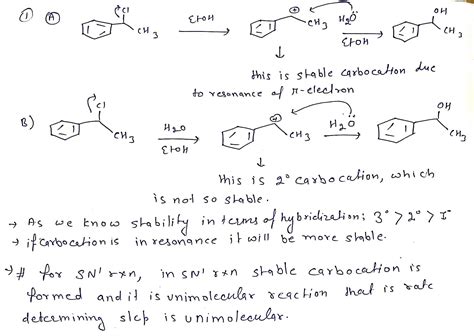 ① Ⓐ Cl CH3 EtOH ⊕ CH3 H2Ö EtOH OH CH3
↓
this is stable carbocation due
to resonance of π-electron
B) Cl CH3 H2O EtOH ⊕ CH3 H2Ö OH CH3
↓
this is 2° carbocation, which
is not so stable.
→ As we know stability in terms of hybridization; 3° > 2° > 1°
→ if carbocation is in resonance it will be more stable.
→ # for SN' rxn, in SN' rxn stable carbocation is
formed and it is unimolecular reaction that is rate
determining step is unimolecular.